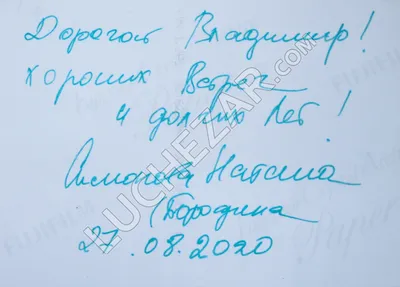 Дорогой Владимир!
Хороших Встреч
и долгих Лет!
Наталия
(Бородина
27.08.2020
LUCHEZAR.COM